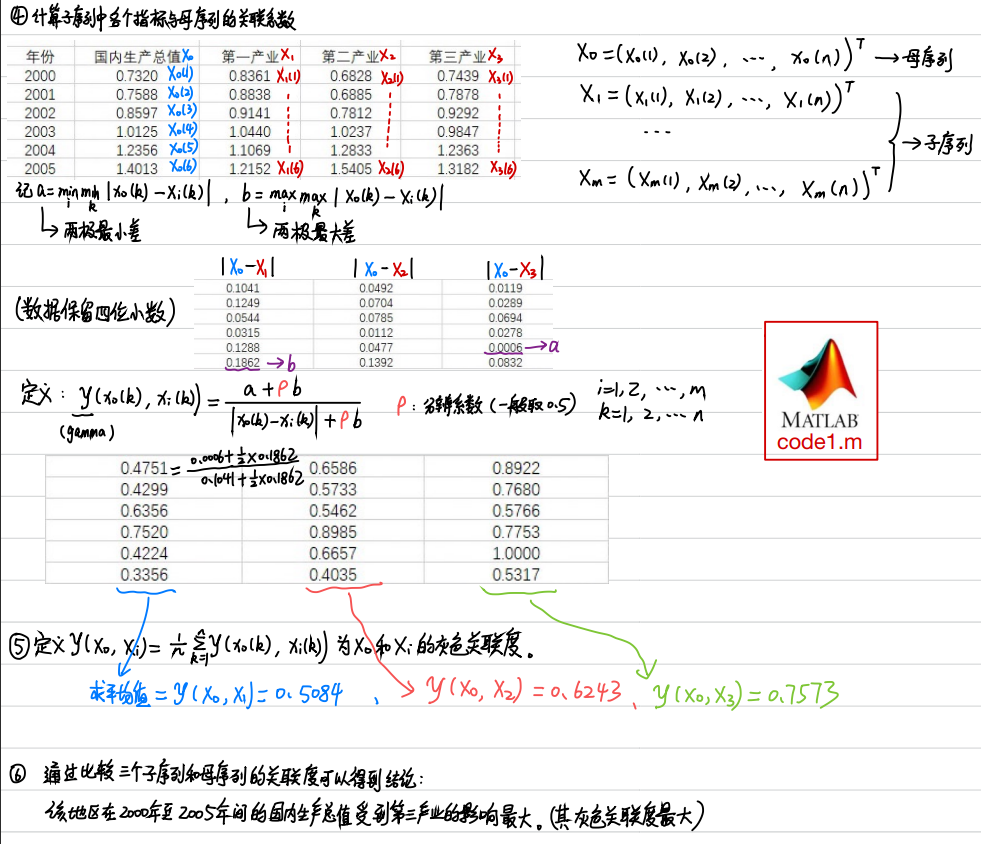 ④计算子序列中各个指标与母序列的关联系数
年份 国内生产总值X₀ 第一产业X₁ 第二产业X₂ 第三产业X₃
2000 0.7320 X₀(1) 0.8361 X₁(1) 0.6828 X₂(1) 0.7439 X₃(1)
2001 0.7588 X₀(2) 0.8838 0.6885 0.7878
2002 0.8597 X₀(3) 0.9141 0.7812 0.9292
2003 1.0125 X₀(4) 1.0440 1.0237 0.9847
2004 1.2356 X₀(5) 1.1069 1.2833 1.2363
2005 1.4013 X₀(6) 1.2152 X₁(6) 1.5405 X₂(6) 1.3182 X₃(6)
X₀=(X₀(1), X₀(2), ···, X₀(n))ᵀ →母序列
X₁=(X₁(1), X₁(2), ···, X₁(n))ᵀ
···
→子序列
Xm=(Xm(1), Xm(2), ···, Xm(n))ᵀ
记 a=min min |X₀(k)-Xᵢ(k)|, b=max max |X₀(k)-Xᵢ(k)|
i k i k
↳两极最小差 ↳两极最大差
|X₀-X₁| |X₀-X₂| |X₀-X₃|
(数据保留四位小数)
0.1041 0.0492 0.0119
0.1249 0.0704 0.0289
0.0544 0.0785 0.0694
0.0315 0.0112 0.0278
0.1288 0.0477 0.0006→a
0.1862→b 0.1392 0.0832
定义: y(x₀(k), xᵢ(k))= (a+ρb)/(|x₀(k)-xᵢ(k)|+ρb) ρ:分辨系数(一般取0.5) i=1,2,···,m
(gamma) k=1,2,···n
MATLAB
code1.m
0.4751=(0.0006+½×0.1862)/(0.1041+½×0.1862) 0.6586 0.8922
0.4299 0.5733 0.7680
0.6356 0.5462 0.5766
0.7520 0.8985 0.7753
0.4224 0.6657 1.0000
0.3356 0.4035 0.5317
⑤定义 y(X₀, Xᵢ)= 1/n Σⁿₖ₌₁ y(x₀(k), xᵢ(k)) 为X₀和Xᵢ的灰色关联度。
求平均值=y(X₀, X₁)=0.5084, y(X₀, X₂)=0.6243, y(X₀, X₃)=0.7573
⑥ 通过比较三个子序列和母序列的关联度可以得到结论:
该地区在2000年至2005年间的国内生产总值受到第三产业的影响最大。(其灰色关联度最大)